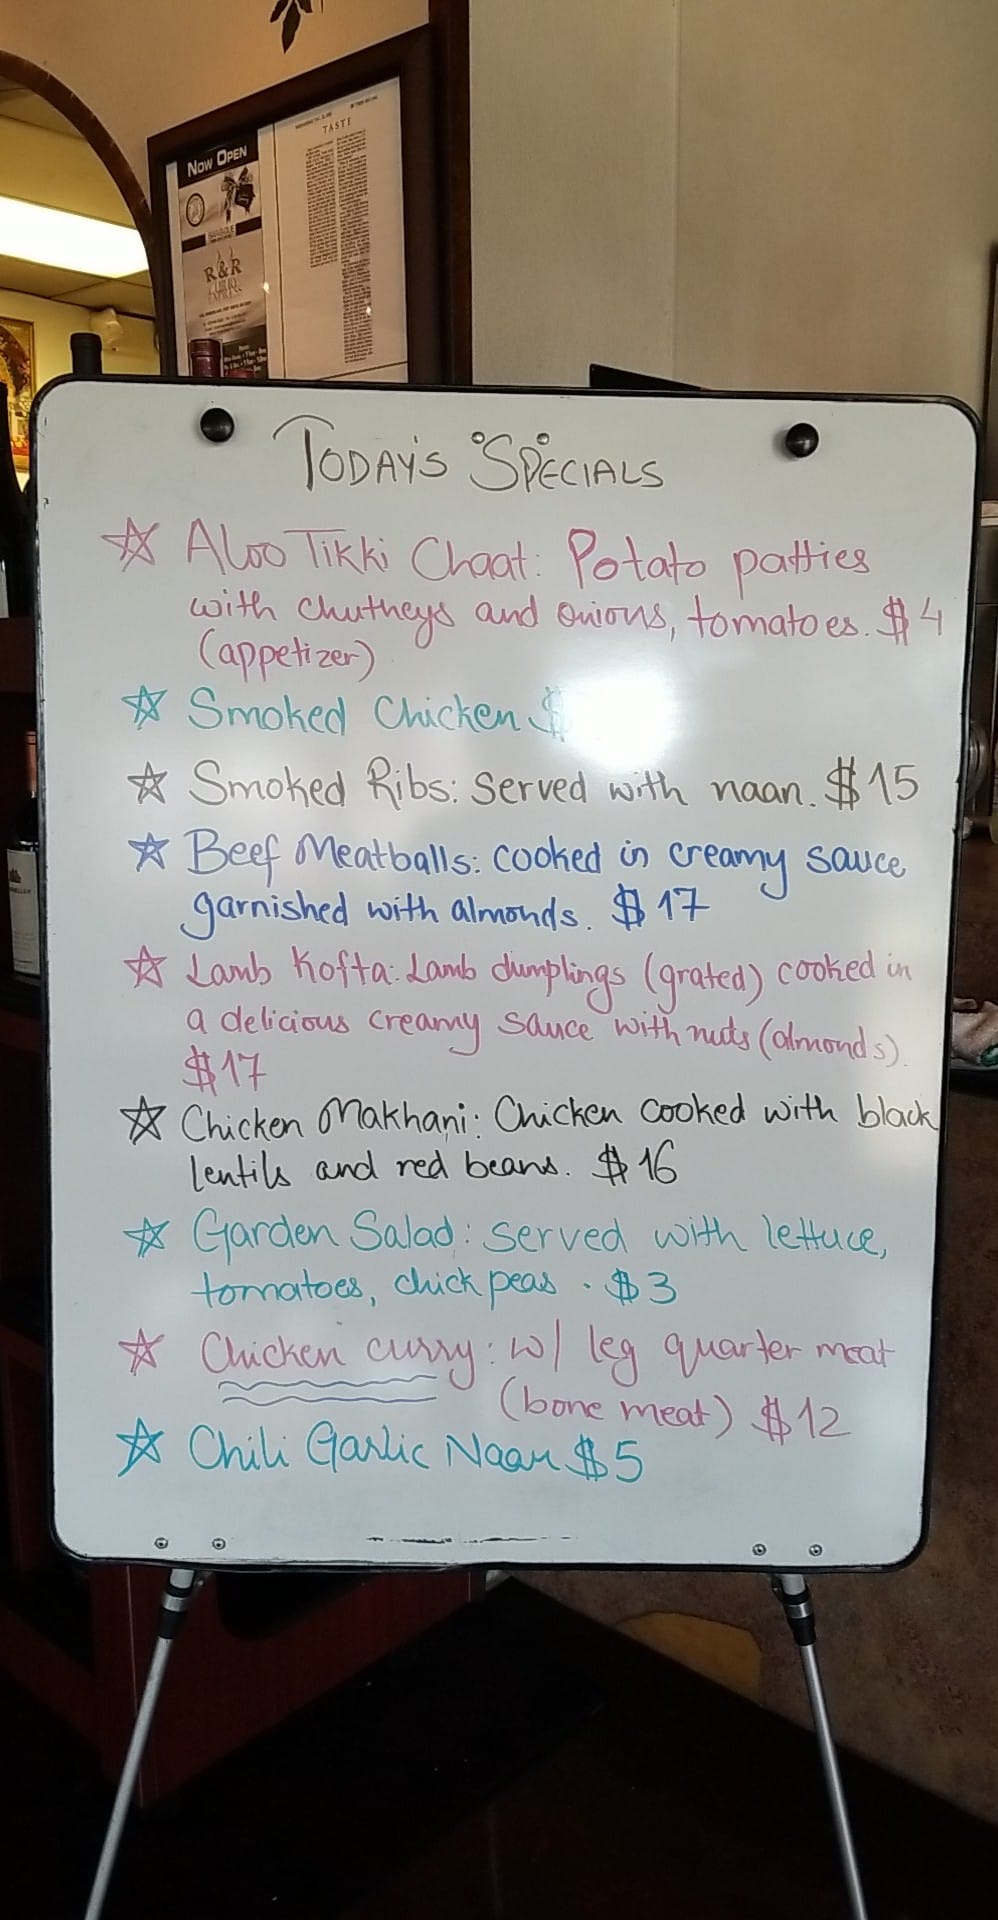 NOW OPEN
TASTE
R&R
TODAY'S SPECIALS
Aloo Tikki Chaat: Potato patties
with chutneys and onions, tomatoes. $4
(appetizer)
Smoked Chicken $
Smoked Ribs: Served with naan. $15
Beef Meatballs: cooked in creamy sauce
garnished with almonds. $17
Lamb Kofta: Lamb dumplings (grated) cooked in
a delicious creamy sauce with nuts (almonds).
$17
Chicken Makhani: Chicken cooked with black
lentils and red beans. $16
Garden Salad: served with lettuce,
tomatoes, chick peas. $3
Chicken curry: w/ leg quarter meat
(bone meat) $12
Chili Garlic Naan $5